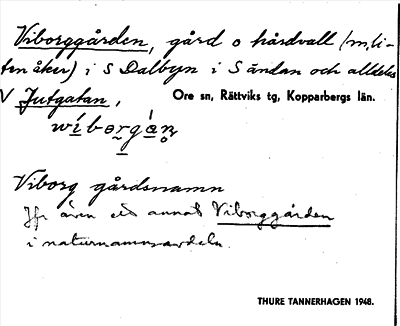 Viborggården, gård o hårdvall (m. li-
ten åker) i S Dalbyn i S ändan och alldeles
V Jutgatan, Ore sn, Rättviks tg, Kopparbergs län.
wíborgàn
Viborg gårdsnamn
Jfr även ett annat Viborggården
i naturnamnsavdeln.
THURE TANNERHAGEN 1948.